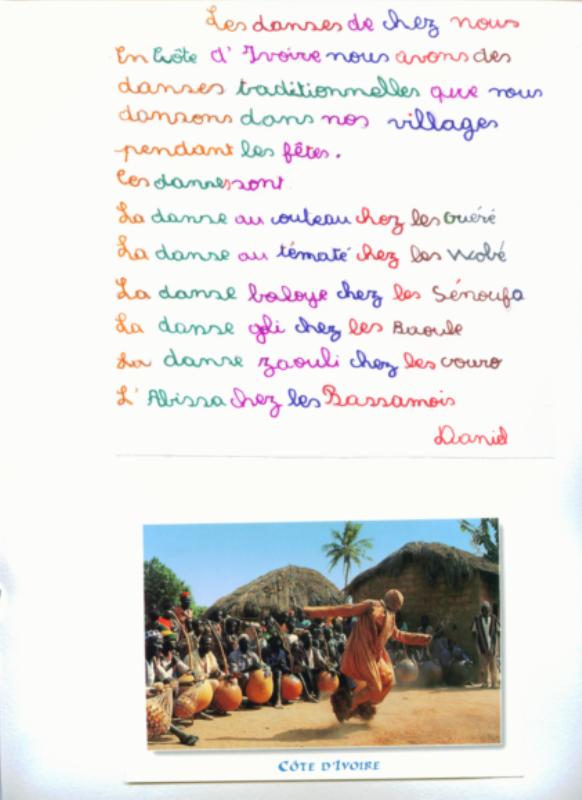 Les danses de chez nous
En Côte d'Ivoire nous avons des
danses traditionnelles que nous
dansons dans nos villages
pendant les fêtes.
Ces danses sont
La danse au couteau chez les Guéré
La danse au tématé chez les Wobé
La danse baloye chez les Sénoufo
La danse goli chez les Baoule
La danse zaouli chez les Gouro
L'Abissa chez les Bassamois
Daniel
CÔTE D'IVOIRE